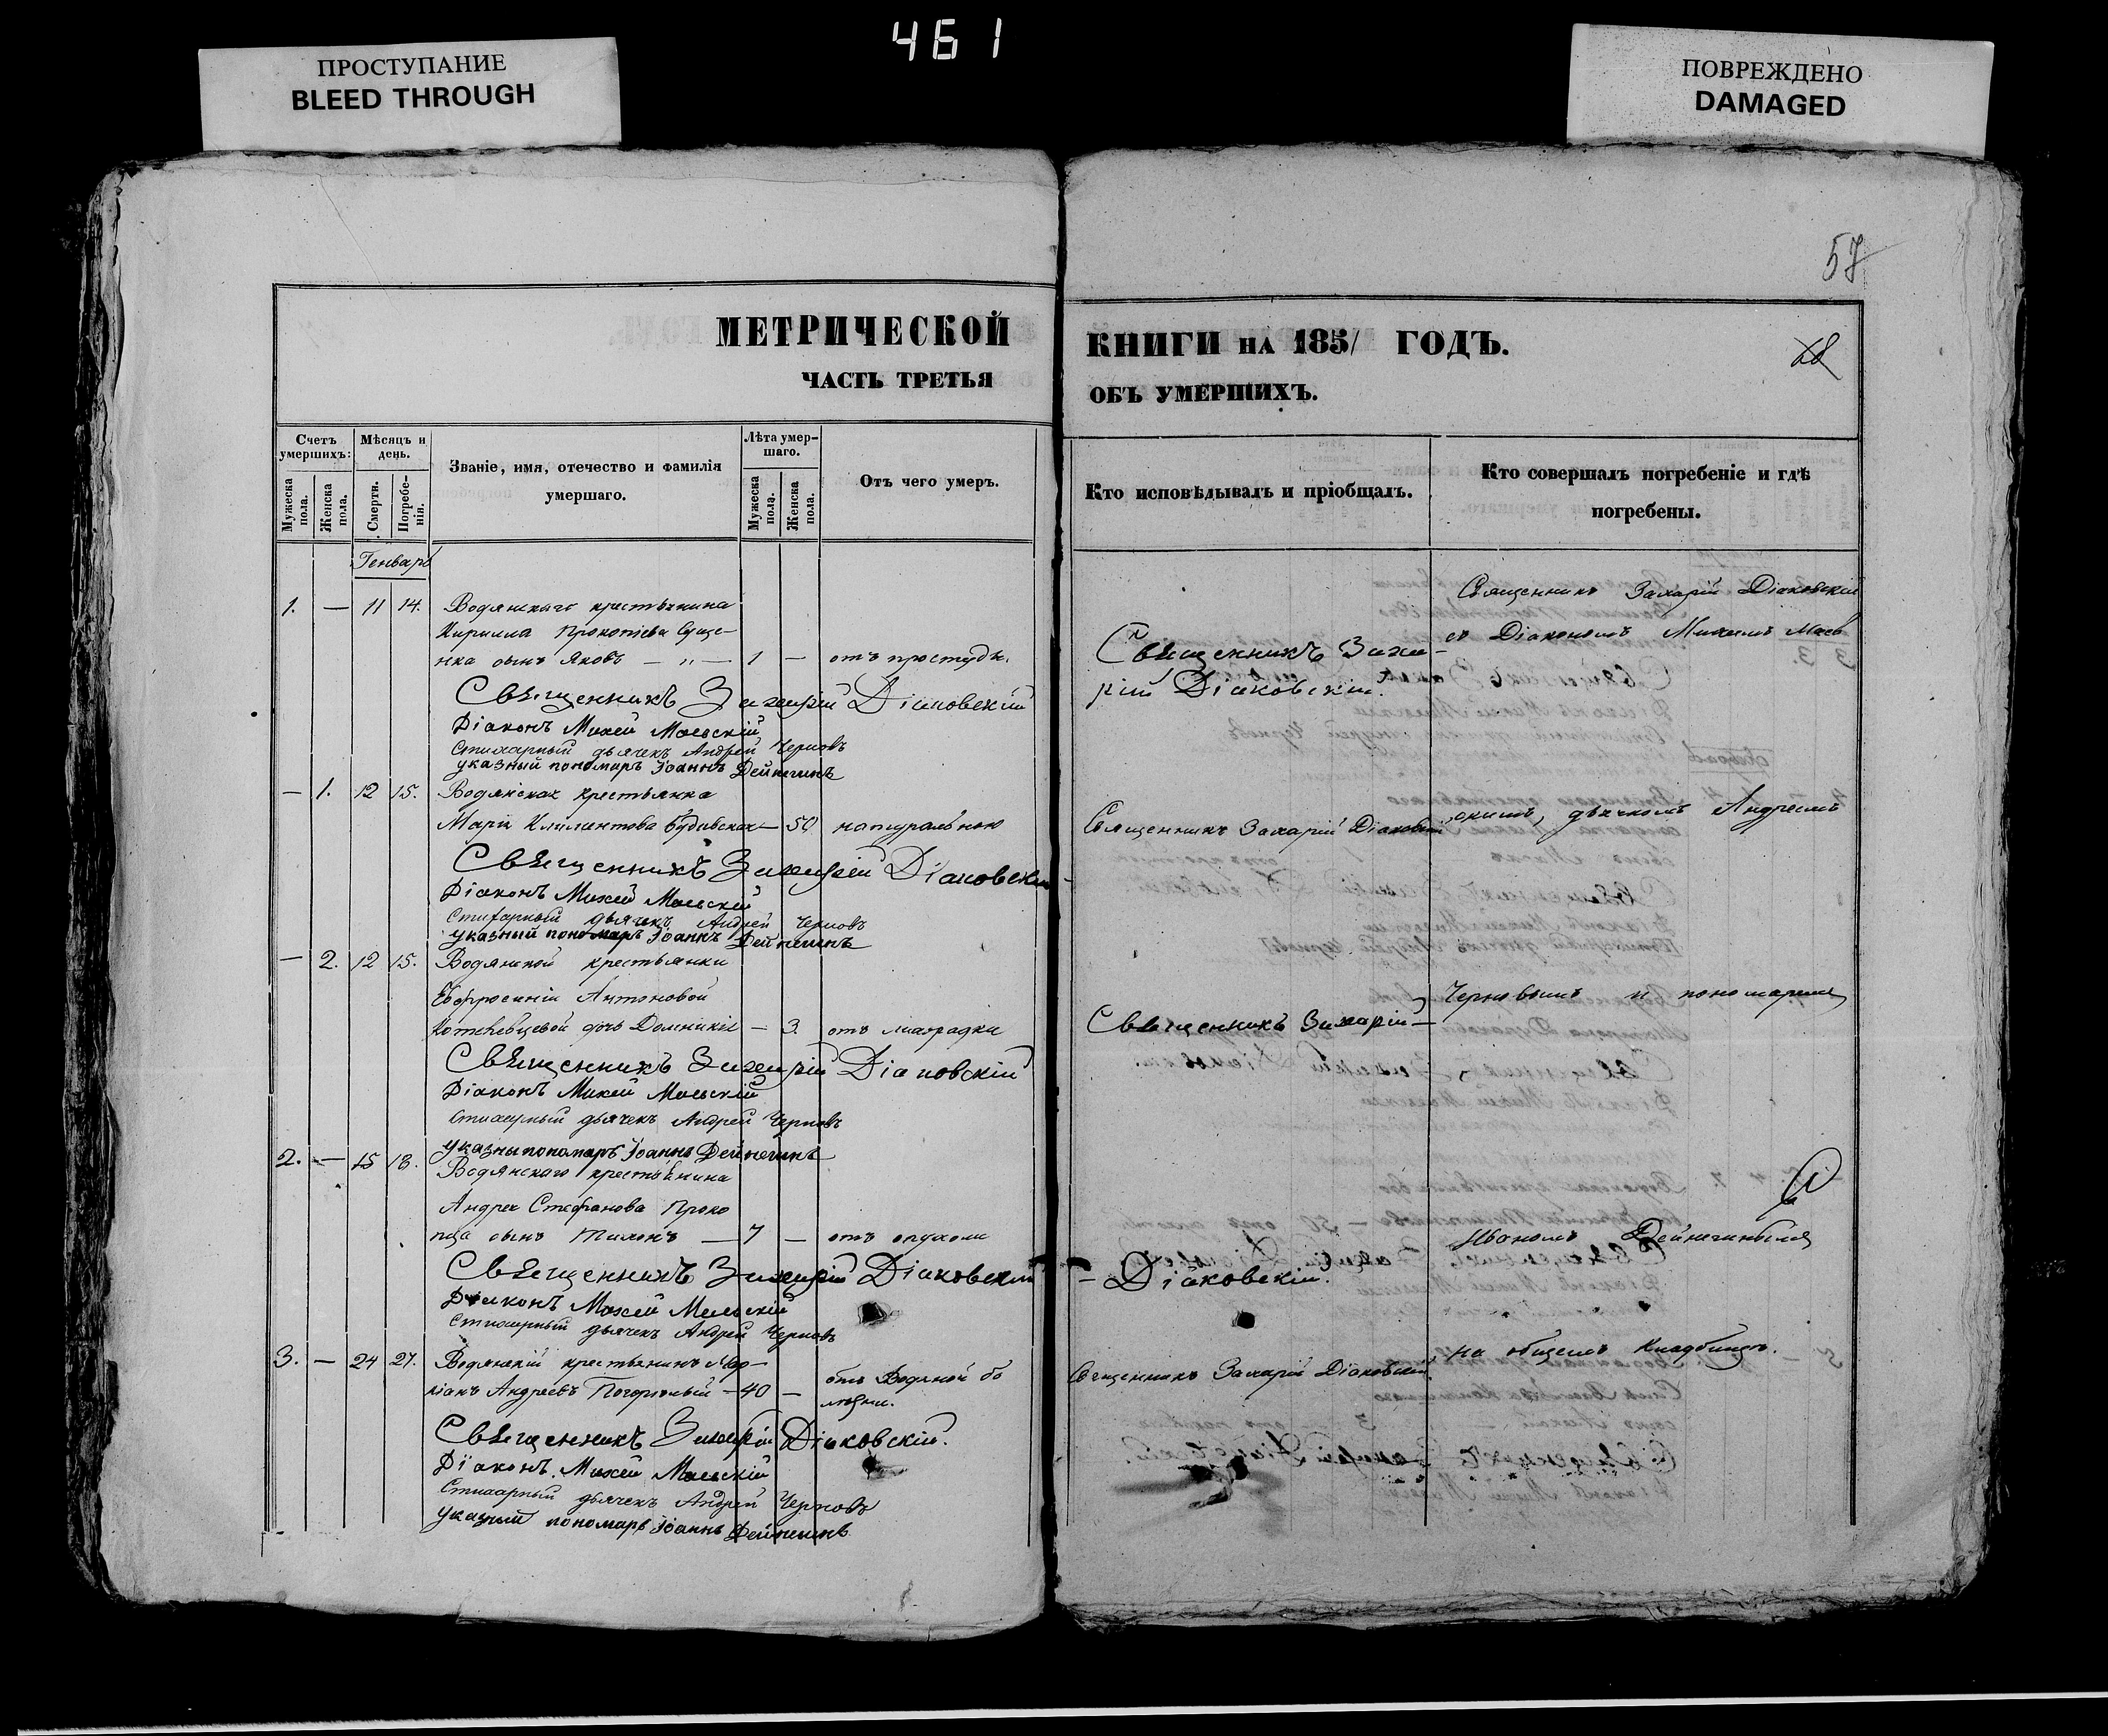 461
ПРОСТУПАНИЕ
BLEED THROUGH
ПОВРЕЖДЕНО
DAMAGED
57
МЕТРИЧЕСКОЙ
ЧАСТЬ ТРЕТЬЯ
Счетъ умершихъ:
Мужеска пола.
Женска пола.
Мѣсяцъ и день.
Смерти.
Погребенія.
Званіе, имя, отечество и фамилія
умершаго.
Лѣта умершаго.
Мужеска пола.
Женска пола.
Отъ чего умеръ.
Генварь
1. — 11 14. Водянскаго крестьянина
Кирилла Прокопіева Суще-
нка сынъ Яковъ — „ — 1 — отъ простуды.
Священникъ Захарій Діаковскій
Діаконъ Михей Маевскій
Стихарный дьячекъ Андрей Черновъ
указный пономарь Іоаннъ Дейнегинъ
— 1. 12 15. Водянская крестьянка
Марія Климентова — 50 натуральною
Священникъ Захарій Діаковскій
Діаконъ Михей Маевскій
Стихарный дьячекъ Андрей Черновъ
указный пономарь Іоаннъ Дейнегинъ
— 2. 12 15. Водянской крестьянки
Евфросиніи Антоновой
дочь Домникія — 3. отъ
Священникъ Захарій Діаковскій
Діаконъ Михей Маевскій
Стихарный дьячекъ Андрей Черновъ
указны пономарь Іоаннъ Дейнегинъ
2. — 15 18. Водянскаго крестьянина
Андрея Стефанова Проко
пца сынъ Тихонъ — 7 — отъ опухоли
Священникъ Захарій Діаковскій
Діаконъ Михей Маевскій
Стихарный дьячекъ Андрей Черновъ
3. — 24 27. Водянскій крестьянинъ
Андреевъ — 40 — отъ Водяной бо
лѣзни.
Священникъ Захарій Діаковскій.
Діаконъ Михей Маевскій
Стихарный дьячекъ Андрей Черновъ
указный пономарь Іоаннъ Дейнегинъ
КНИГИ НА 1851 ГОДЪ.
ОБЪ УМЕРШИХЪ.
Кто исповѣдывалъ и пріобщалъ.
Кто совершалъ погребеніе и гдѣ
погребены.
Священникъ Заха-
рій Діаковскій.
Священникъ Захарій Діаковскій
Священникъ Захарій —
— Діаковскій.
Священникъ Захарій Діаковскій
Священникъ Захарій Діаковскій
съ Діакономъ Михеемъ Маев
скимъ, дьячкомъ Андреемъ
Черновымъ и пономаремъ
Иваномъ Дейнегинымъ
на общемъ кладбищѣ.